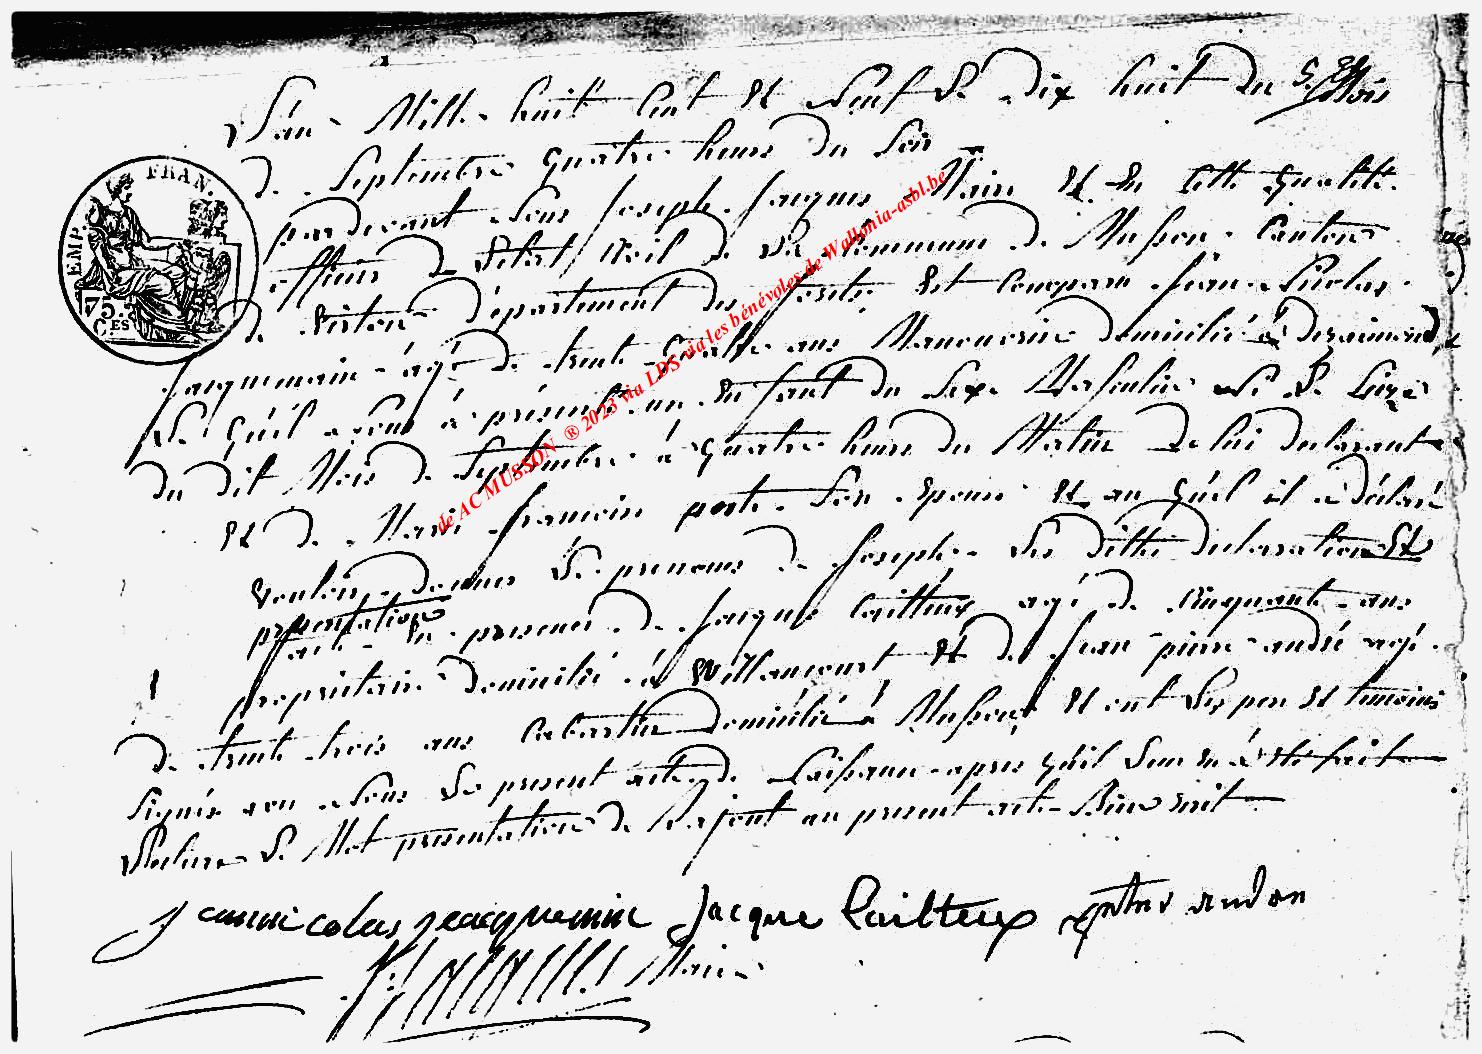 L'an Mille huit Cent Et Neuf Le dix huit du Mois
de Septembre quatre heures du Soir
pardevant Nous Joseph Jacques Maire Et En Cette qualité
officier de L'Etat Civil de La Commune de Musson Canton
de Virton département des forêts Est Comparu Jean Nicolas
Jacquemain âgé de trente quatre ans Manouvrier domicilié à
Le quel a Nous à présenté un Enfant du Sexe Masculin Né Le
du dit Mois de Septembre à quatre heures du Matin de lui declarant
Et de Marie françoise Son Epouse Et au quel il a déclaré
vouloir donner Le prenoms de Joseph Les dittes declaration Et
presentation
faite En presence de Jacque Cailteux agé de Cinquante ans
propriétaire domicilié à Willancourt Et de Jean pierre andré agé
de trente trois ans Cabartier domicilié à Musson Et ont Les pere Et temoins
Signés avec Nous Le present acte de Naissance apres quil Leur En à Eté fait
Lecture Le Mot presentation de Rajout au present acte
jeannicolas jeacquemin Jacque Cailteux
Maire
FRAN.
EMP.
75
C.ES
de AC MUSSON ® 2023 via LDS via les bénévoles de Wallonia-asbl.be